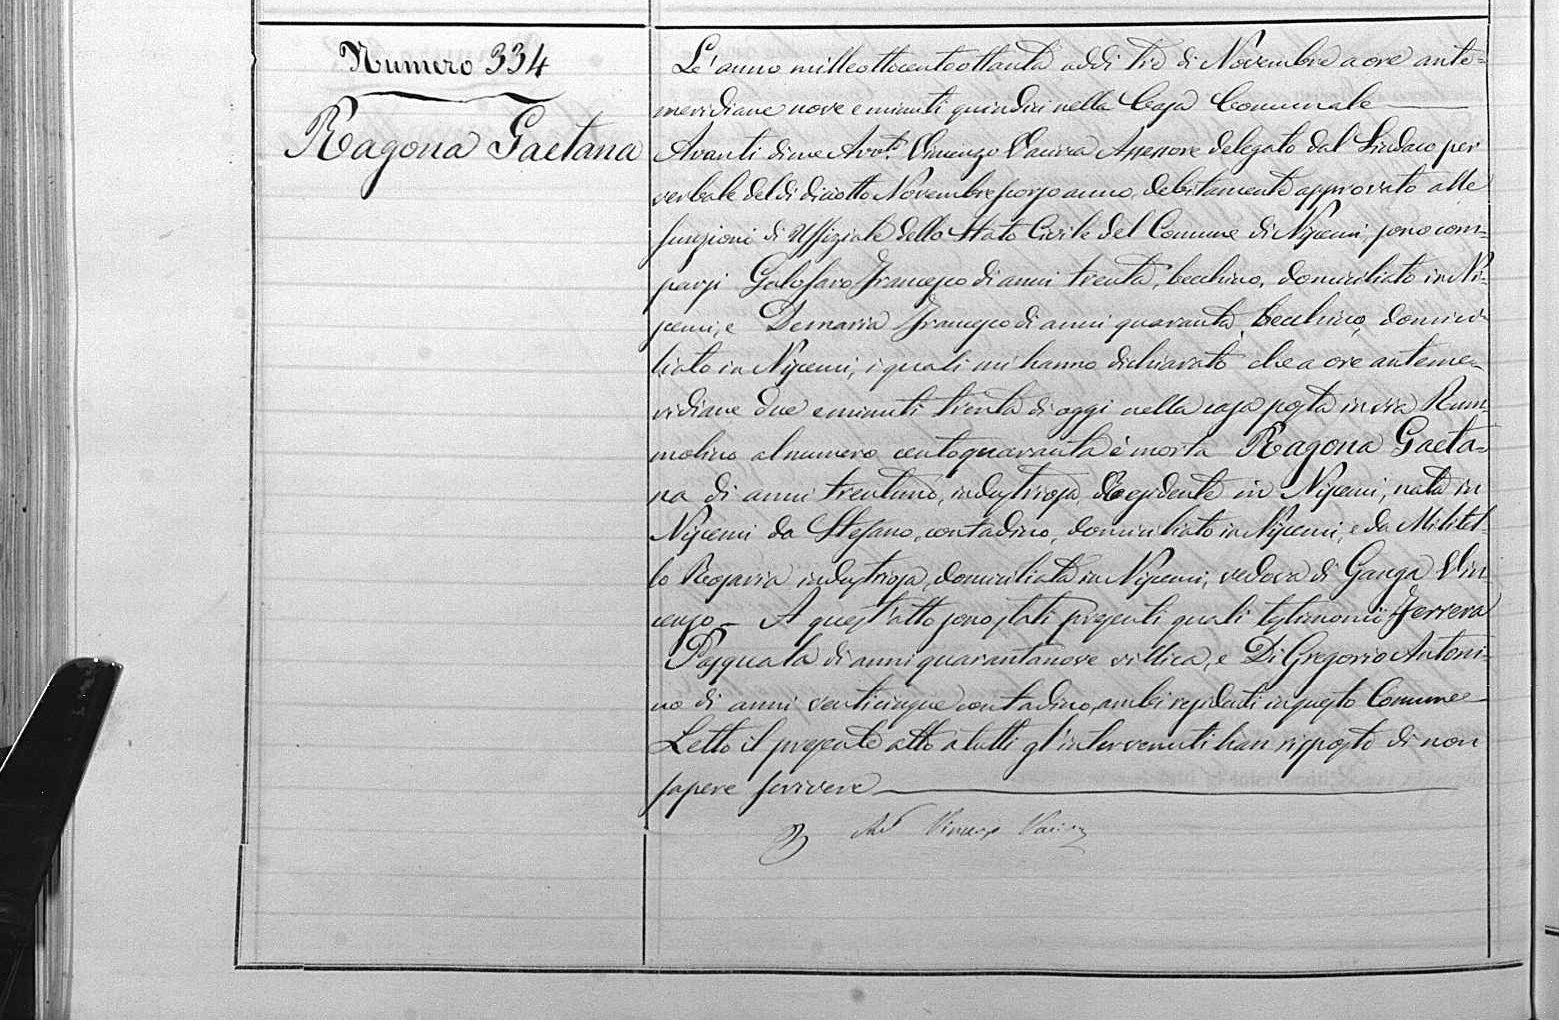 Numero 334
Ragona Gaetana
L'anno milleottocentoottanta addì tre di Novembre a ore ante-
meridiane nove e minuti quindici nella Casa Comunale
Avanti di me Avvt. Vincenzo Vacirca Assessore delegato dal Sindaco per
verbale del dì diciotto Novembre scorso anno, debitamente approvato alle
funzioni di Uffiziale dello Stato Civile del Comune di Niscemi, sono com-
parsi Galofaro Francesco di anni trenta, becchino, domiciliato in Ni-
scemi, e Demaria Francesco di anni quaranta, becchino, domici-
liato in Niscemi, i quali mi hanno dichiarato che a ore anteme-
ridiane due e minuti trenta di oggi nella casa posta in via Rum-
molino al numero centoquaranta è morta Ragona Gaeta-
na di anni trentuno, industriosa, residente in Niscemi, nata in
Niscemi da Stefano, contadino, domiciliato in Niscemi, e da Militel-
lo Rosaria industriosa, domiciliata in Niscemi, vedova di Ganga Vin-
cenzo - A quest'atto sono stati presenti quali testimonii Ferrera
Pasquala di anni quarantanove villica, e Di Gregorio Antoni-
no di anni venticinque contadino, ambi residenti in questo Comune
Letto il presente atto a tutti gl'intervenuti han risposto di non
sapere scrivere
Vincenzo